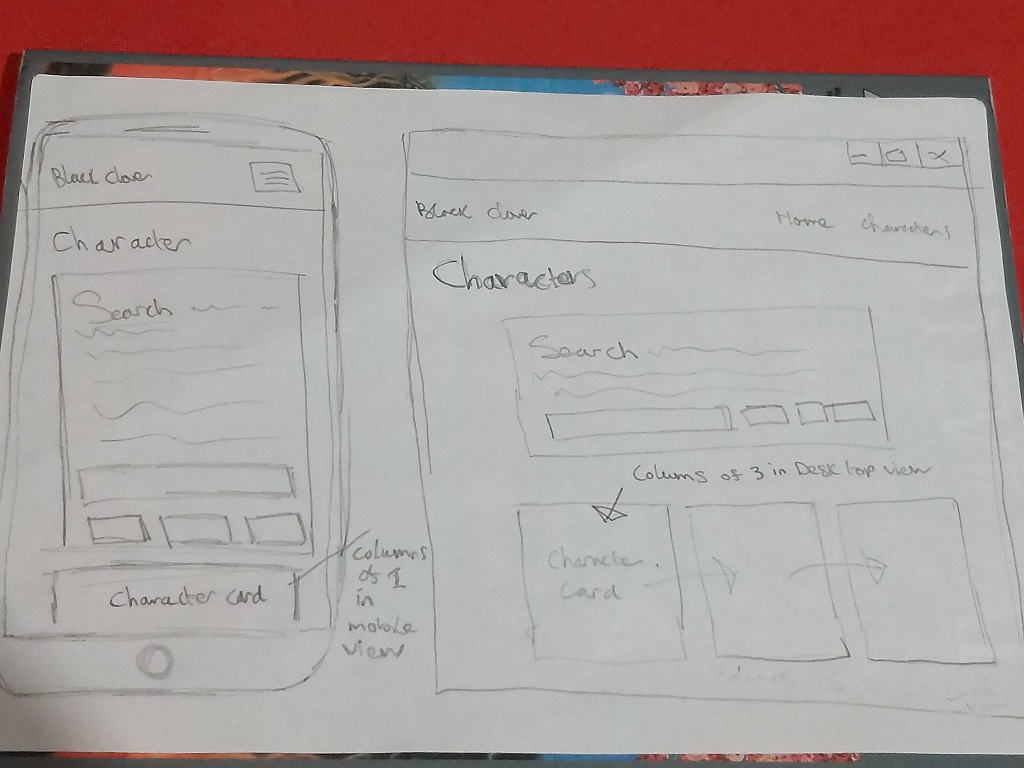 Black clover
Character
Search
Character card
columns
of 1
in
mobile
view
Black clover
Home characters
Characters
Search
Colums of 3 in Desktop view
Character
Card